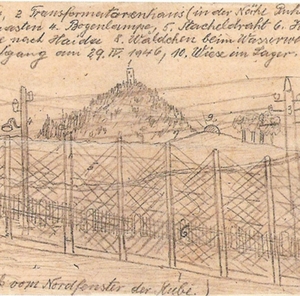 , 2 Transformatorenhaus (in der Nähe
kasten 4. Bogenlampe, 5. Stacheldraht 6.
nach Haida 8. Wäldchen beim Wasserwe
gang am 29. IV. 1946, 10. Wiese im Lager
vom Nordfenster der Stube.)